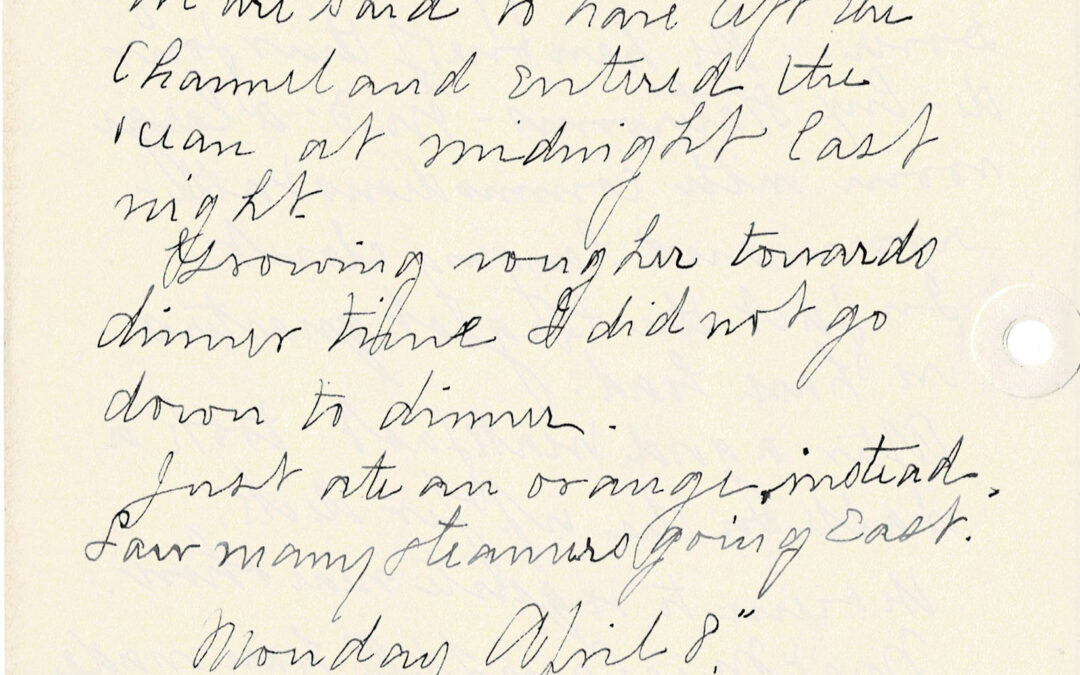 We are said to have left the
Channel and entered the
ocean at midnight last
night.
Growing rougher towards
dinner time I did not go
down to dinner.
Just ate an orange, instead.
Saw many steamers going East.
Monday April 8"